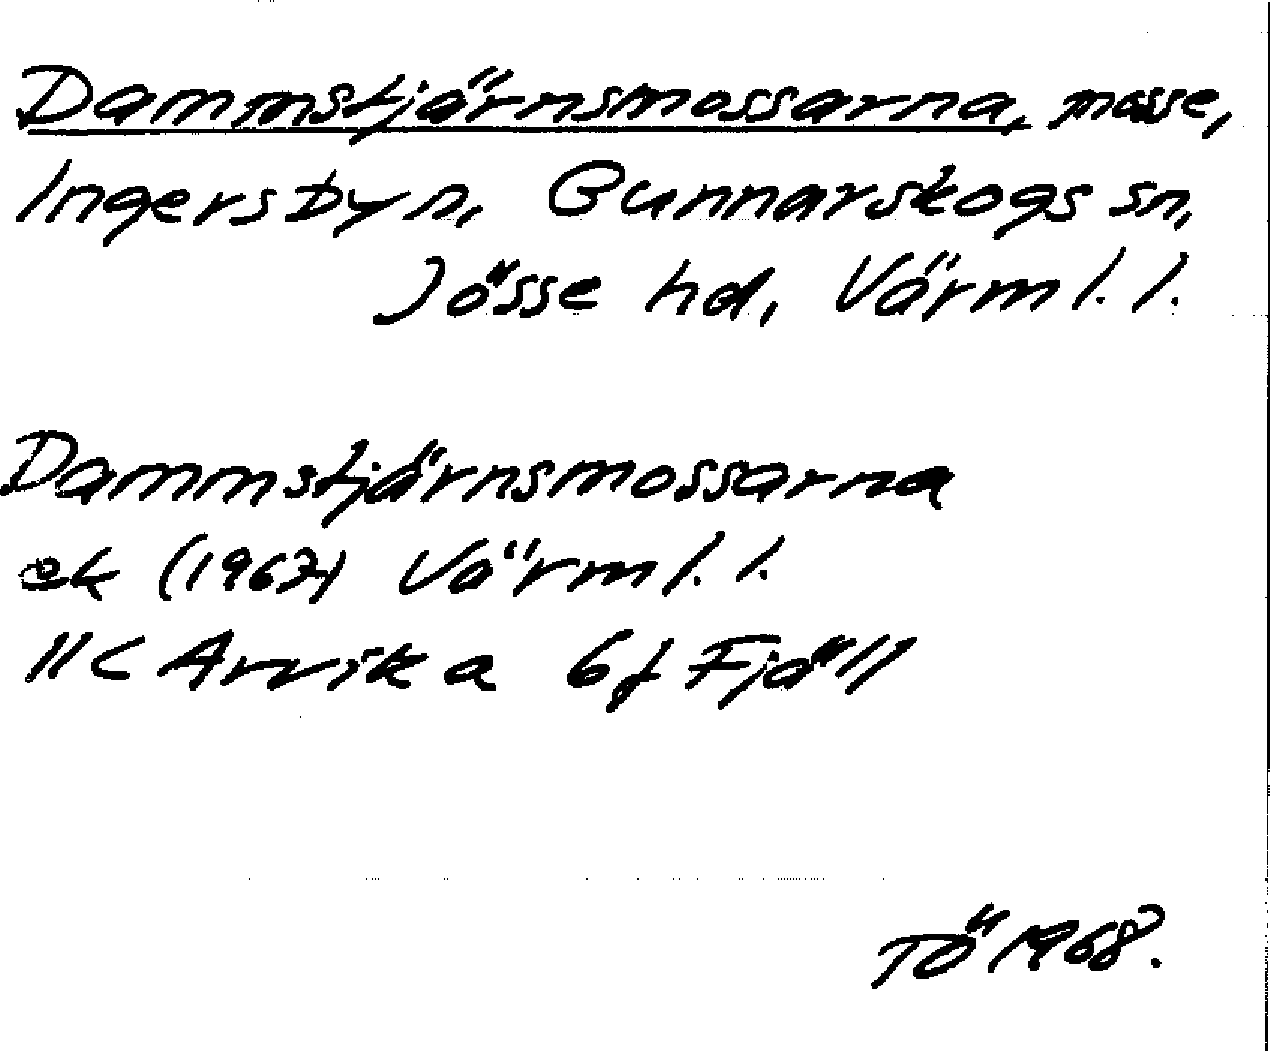 Dammstjärnsmossarna, mosse,
Ingersbyn, Gunnarskogs sn,
Jösse hd, Värml. l.
Dammstjärnsmossarna
ek (1967) Värml. l.
11C Arvika 6f Fjäll
TÖ 1968.